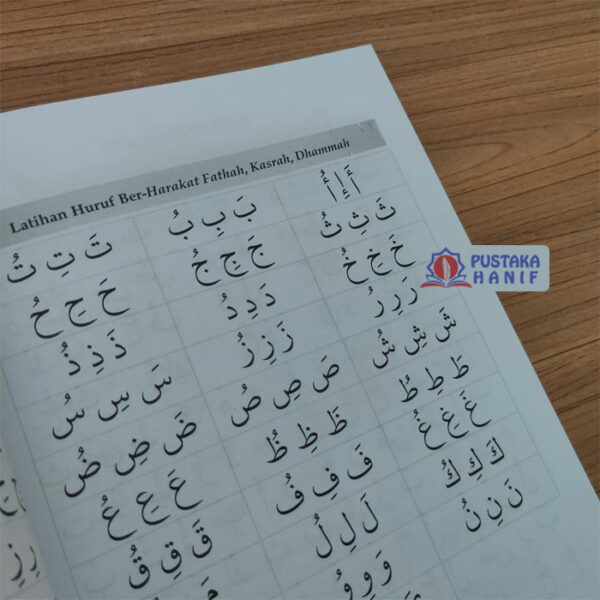 Latihan Huruf Ber-Harakat Fathah, Kasrah, Dhammah
أَ إِ أُ بَ بِ بُ تَ تِ تُ
ثَ ثِ ثُ جَ جِ جُ حَ حِ حُ
خَ خِ خُ دَ دِ دُ ذَ ذِ ذُ
رَ رِ رُ زَ زِ زُ سَ سِ سُ
شَ شِ شُ صَ صِ صُ ضَ ضِ ضُ
طَ طِ طُ ظَ ظِ ظُ عَ عِ عُ
غَ غِ غُ فَ فِ فُ قَ قِ قُ
كَ كِ كُ لَ لِ لُ مَ
نَ نِ نُ وَ وِ وُ
PUSTAKA
HANIF